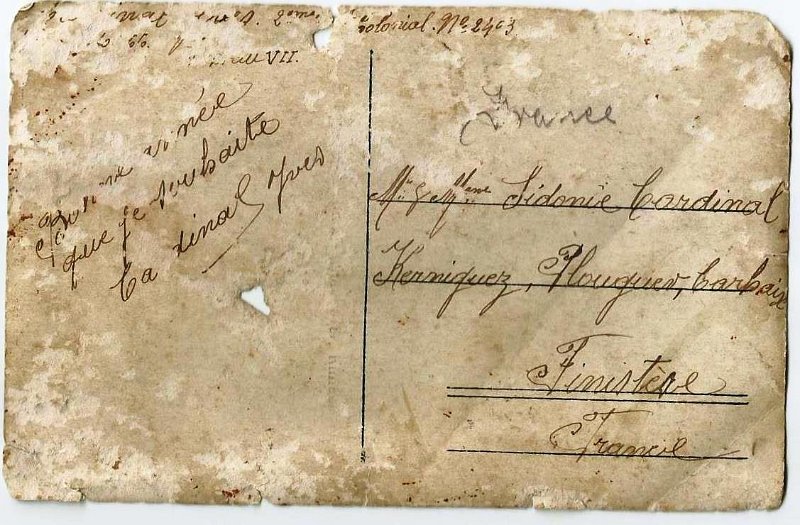 Colonial. No 2403
VII.
Bonne année
que je souhaite
Cardinal Yves
France
Mr & Mme Sidonie Cardinal
Kerniguez, Plouguer, Carhaix
Finistère
France